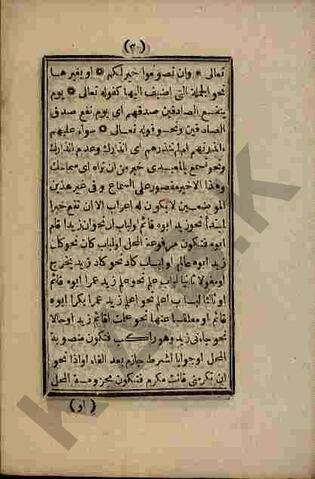 (٣٠)
تعالى * وان تصوموا خير لكم * او بغيرها
نحو الجملة التى اضيف اليها كقوله تعالى * يوم
ينفع الصادقين صدقهم اى يوم نفع صدق
الصادقين ونحو قوله تعالى * سواء عليهم
ءانذرتهم ام لم تنذرهم اى انذارك وعدم انذارك
ونحو تسمع بالمعيدى خير من ان تراه اى سماعك
وهذا الاخير مقصور على السماع وفى غير هذين
الموضعين لا يكون له اعراب الا ان تقع خبرا
لمبتدأ نحو زيد ابوه قائم او لباب ان نحو ان زيدا قام
ابوه فتكون مرفوعة المحل او لباب كان نحو كان
زيد ابوه عالم او لباب كاد نحو كاد زيد يخرج
او مفعولا ثانيا لباب علم نحو علم زيد عمرا ابوه قائم
او ثالثا لباب اعلم نحو اعلم زيد عمرا بكرا ابوه
قائم او معلقا عنها نحو علمت اقائم زيد او حالا
نحو جاءنى زيد وهو راكب فتكون منصوبة
المحل او جوابا لشرط جازم بعد الفاء او اذا نحو
ان تكرمنى فانت مكرم فتكون مجزومة المحل
(او)